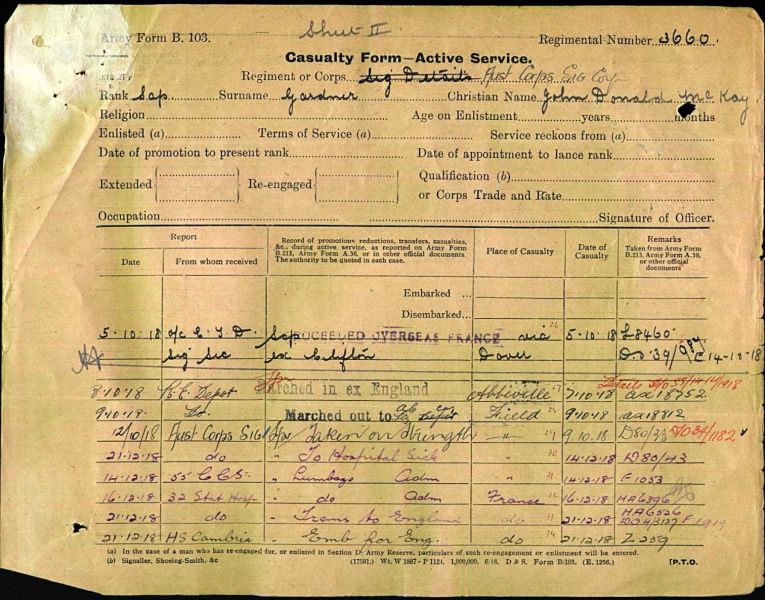 Army Form B. 103.
Sheet II
Regimental Number 3660.
Casualty Form—Active Service.
Regiment or Corps Sig Details Aust Corps Sig Coy
Rank Sap Surname Gardner Christian Name John Donald McKay
Religion Age on Enlistment years months
Enlisted (a) Terms of Service (a) Service reckons from (a)
Date of promotion to present rank Date of appointment to lance rank
Extended Re-engaged Qualification (b)
or Corps Trade and Rate
Occupation Signature of Officer.
Report
Date
From whom received
Record of promotions, reductions, transfers, casualties,
&c., during active service, as reported on Army Form
B.213, Army Form A.36, or in other official documents.
The authority to be quoted in each case.
Place of Casualty
Date of
Casualty
Remarks
Taken from Army Form
B.213, Army Form A.36,
or other official
documents
Embarked ...
Disembarked ...
5.10.18 o/c E.T.D. Sap PROCEEDED OVERSEAS FRANCE via 26 5.10.18 £8460
Sig Sec ex Clifton Dover D.O.39/ 14-10-18
8.10.18 R.E. Depot Marched in ex England Abbiville 7.10.18 aa 18752
9.10.18 Do. Marched out to Field 9.10.18 aa 18812
12/10/18 Aust Corps Sig Taken on Strength " 29 9.10.18 D80/33 DO34/1182
21.12.18 do " To Hospital Sick " 30 14.12.18 D80/43
14.12.18 55 C.C.S. " Lumbago Adm " 31 14.12.18 F 1053
16.12.18 32 Stat Hosp " do Adm France 16.12.18 HA6396
21.12.18 do " Trans to England do 21.12.18 HA6526
21.12.18 HS Cambria " Emb for Eng. do 34 21.12.18 Z 259
(a) In the case of a man who has re-engaged for, or enlisted in Section D, Army Reserve, particulars of such re-engagement or enlistment will be entered.
(b) Signaller, Shoeing-Smith, &c (17591.) Wt. W 1887—P 1124. 1,000,000. 6/18. D & S. Form B/103. (E. 1256.) [P.T.O.